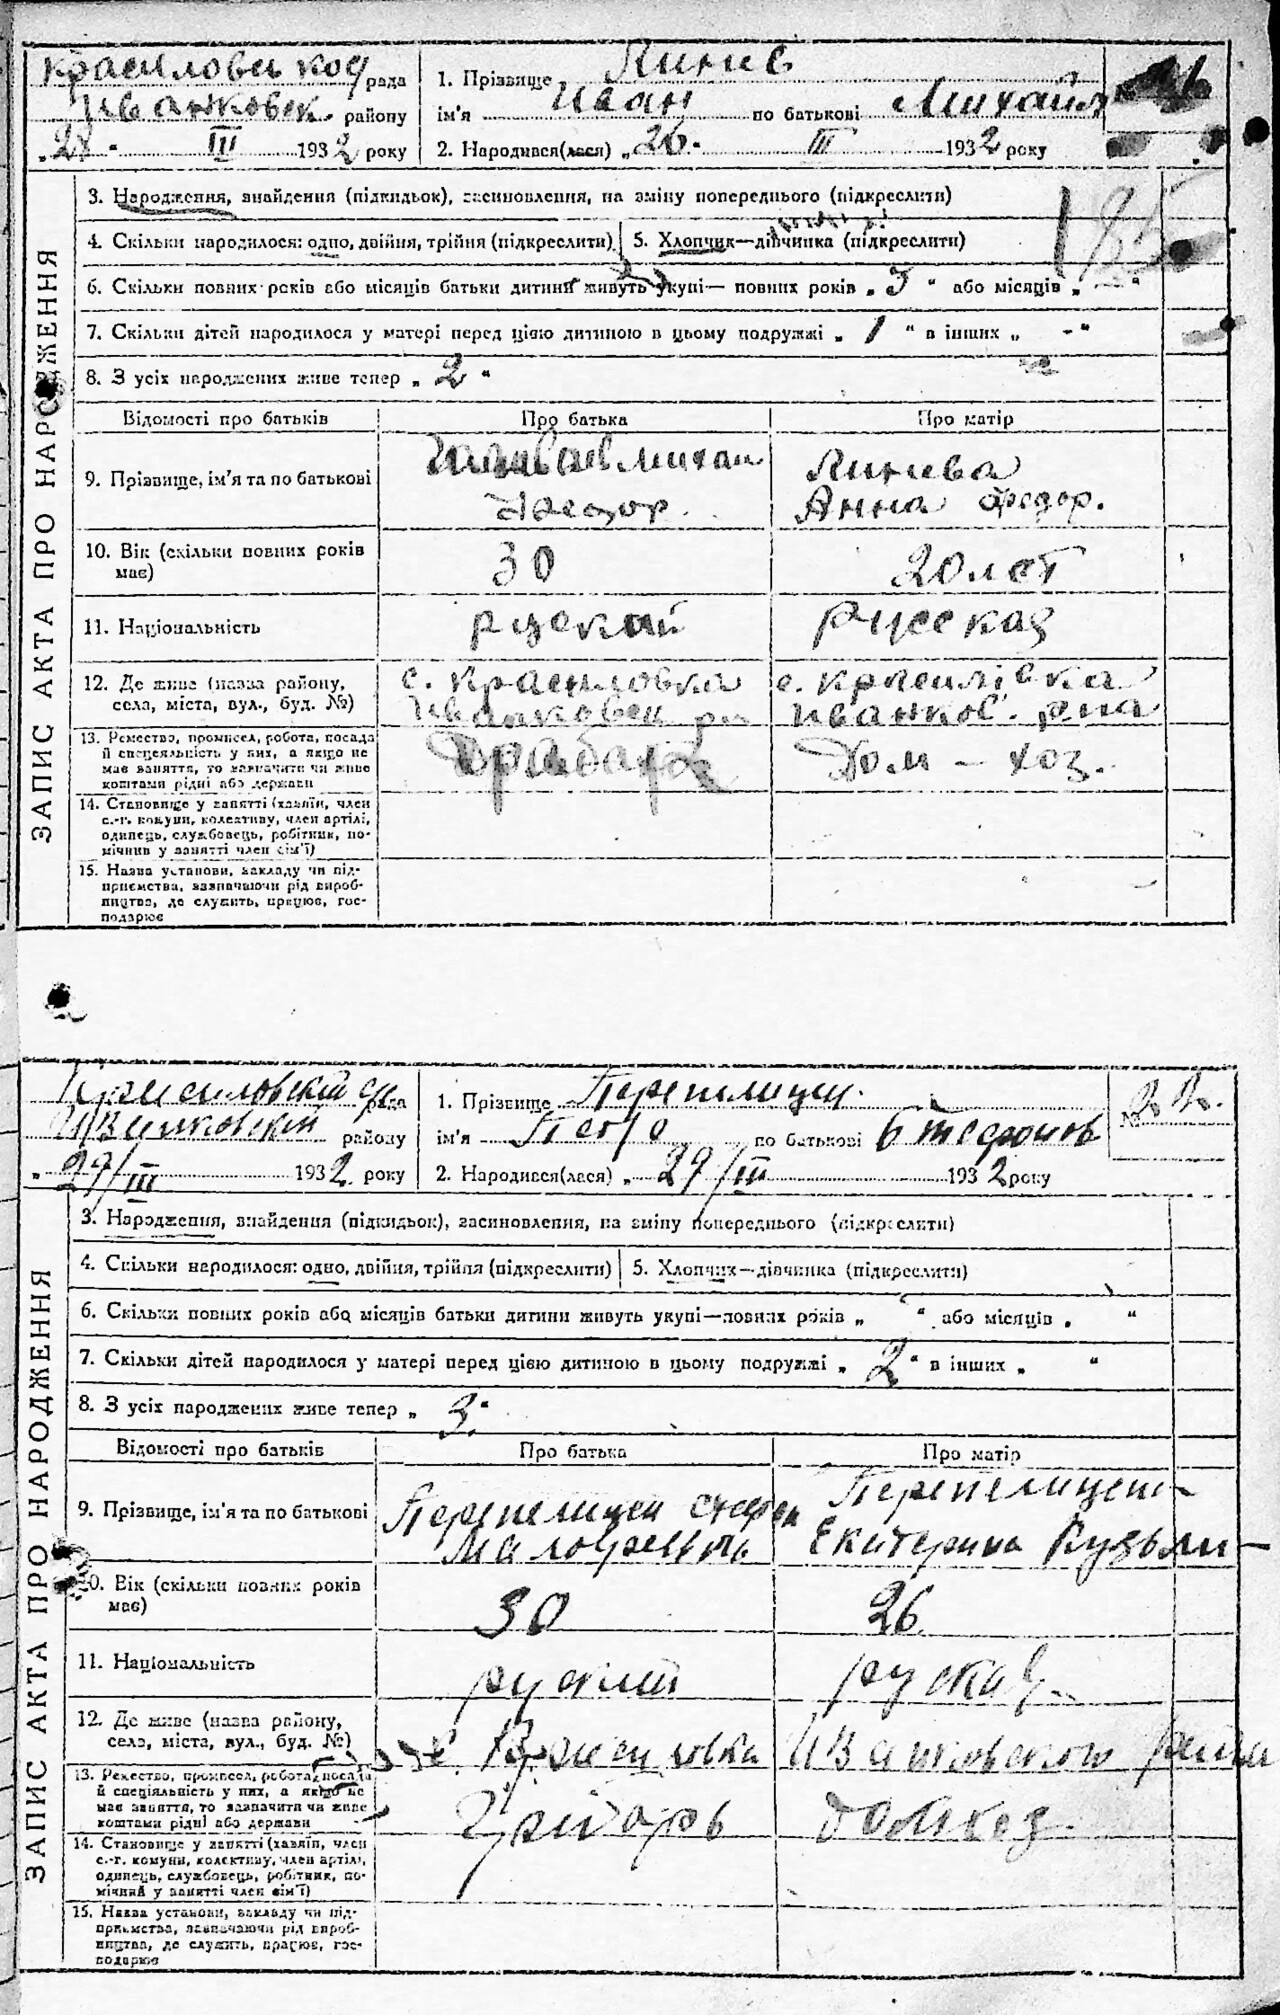 рада
Иванковск. району
"28" III 1932 року
1. Прізвище Линев
ім'я Иван по батькові Михайл
2. Народився(лася) „26." III 1932 року
ЗАПИС АКТА ПРО НАРОДЖЕННЯ
3. Народження, знайдення (підкидьок), засиновлення, на зміну попереднього (підкреслити)
4. Скільки народилося: одно, двійня, трійня (підкреслити)
5. Хлопчик—дівчинка (підкреслити)
6. Скільки повних років або місяців батьки дитини живуть укупі— повних років „3" або місяців „—"
7. Скільки дітей народилося у матері перед цією дитиною в цьому подружжі „1" в інших „-"
8. З усіх народжених живе тепер „2"
Відомості про батьків
Про батька
Про матір
9. Прізвище, ім'я та по батькові
Михаил
Линева
Анна Федор.
10. Вік (скільки повних років
має)
30
20 лет
11. Національність
руский
Русская
12. Де живе (назва району,
села, міста, вул., буд. №)
с. Красиловка
Иванковск рн
с. Красилівка
Иванков. р на
13. Ремество, промисел, робота, посада
й спеціяльність у них, а якщо не
має заняття, то зазначити чи живе
коштами рідні або держави
Дом — хоз.
14. Становище у занятті (хазяїн, член
с.-г. комуни, колективу, член артілі,
одинець, службовець, робітник, по-
мічник у занятті член сім'ї)
15. Назва установи, закладу чи під-
приємства, зазначаючи рід вироб-
ництва, де служить, працює, гос-
подарює
Красиловский с/с рада
Иванковский району
"29/III 1932 року
1. Прізвище Перепелицен
ім'я Петро по батькові Стефонов
2. Народився(лася) „29/III 1932 року
№ 22.
ЗАПИС АКТА ПРО НАРОДЖЕННЯ
3. Народження, знайдення (підкидьок), засиновлення, на зміну попереднього (підкреслити)
4. Скільки народилося: одно, двійня, трійня (підкреслити)
5. Хлопчик—дівчинка (підкреслити)
6. Скільки повних років або місяців батьки дитини живуть укупі—повних років „ " або місяців „ "
7. Скільки дітей народилося у матері перед цією дитиною в цьому подружжі „2" в інших „ "
8. З усіх народжених живе тепер „3"
Відомості про батьків
Про батька
Про матір
9. Прізвище, ім'я та по батькові
Перепелицен Стефан
Перепелицен-
Екатерина Кузьми-
10. Вік (скільки повних років
має)
30
26
11. Національність
руский
руская
12. Де живе (назва району,
села, міста, вул., буд. №)
с. Красиловка Иванковского рай
13. Ремество, промисел, робота, посада
й спеціяльність у них, а якщо не
має заняття, то зазначити чи живе
коштами рідні або держави
домхоз.
14. Становище у занятті (хазяїн, член
с.-г. комуни, колективу, член артілі,
одинець, службовець, робітник, по-
мічний у занятті член сім'ї)
15. Назва установи, закладу чи під-
приємства, зазначаючи рід вироб-
ництва, де служить, працює, гос-
подарює